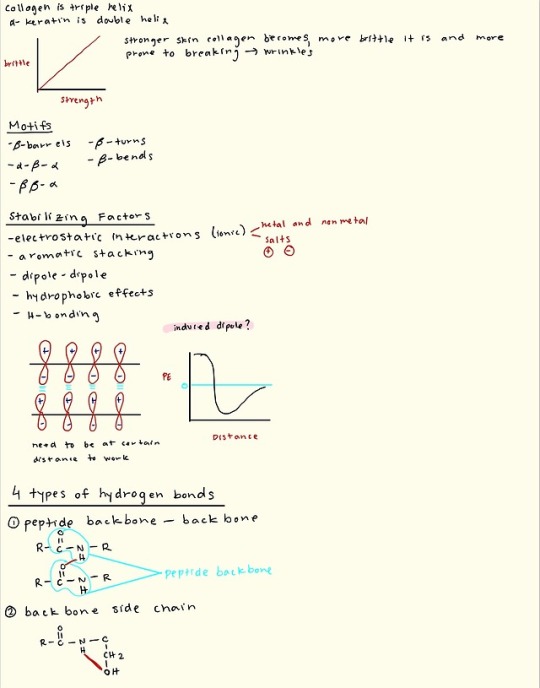 Collagen is triple helix
α-keratin is double helix
brittle
strength
stronger skin collagen becomes, more brittle it is and more
prone to breaking → wrinkles
Motifs
-β-barrels -β-turns
-α-β-α -β-bends
-ββ-α
Stabilizing Factors
-electrostatic interactions (ionic) metal and nonmetal
salts
+ -
- aromatic stacking
- dipole-dipole
- hydrophobic effects
- H-bonding
induced dipole?
+ + + +
- - - -
+ + + +
- - - -
need to be at certain
distance to work
PE
0
Distance
4 types of hydrogen bonds
① peptide backbone - backbone
O
R-C-N-R
H
O
R-C-N-R
H
peptide backbone
② backbone side chain
O
R-C-N-C
H CH2
OH